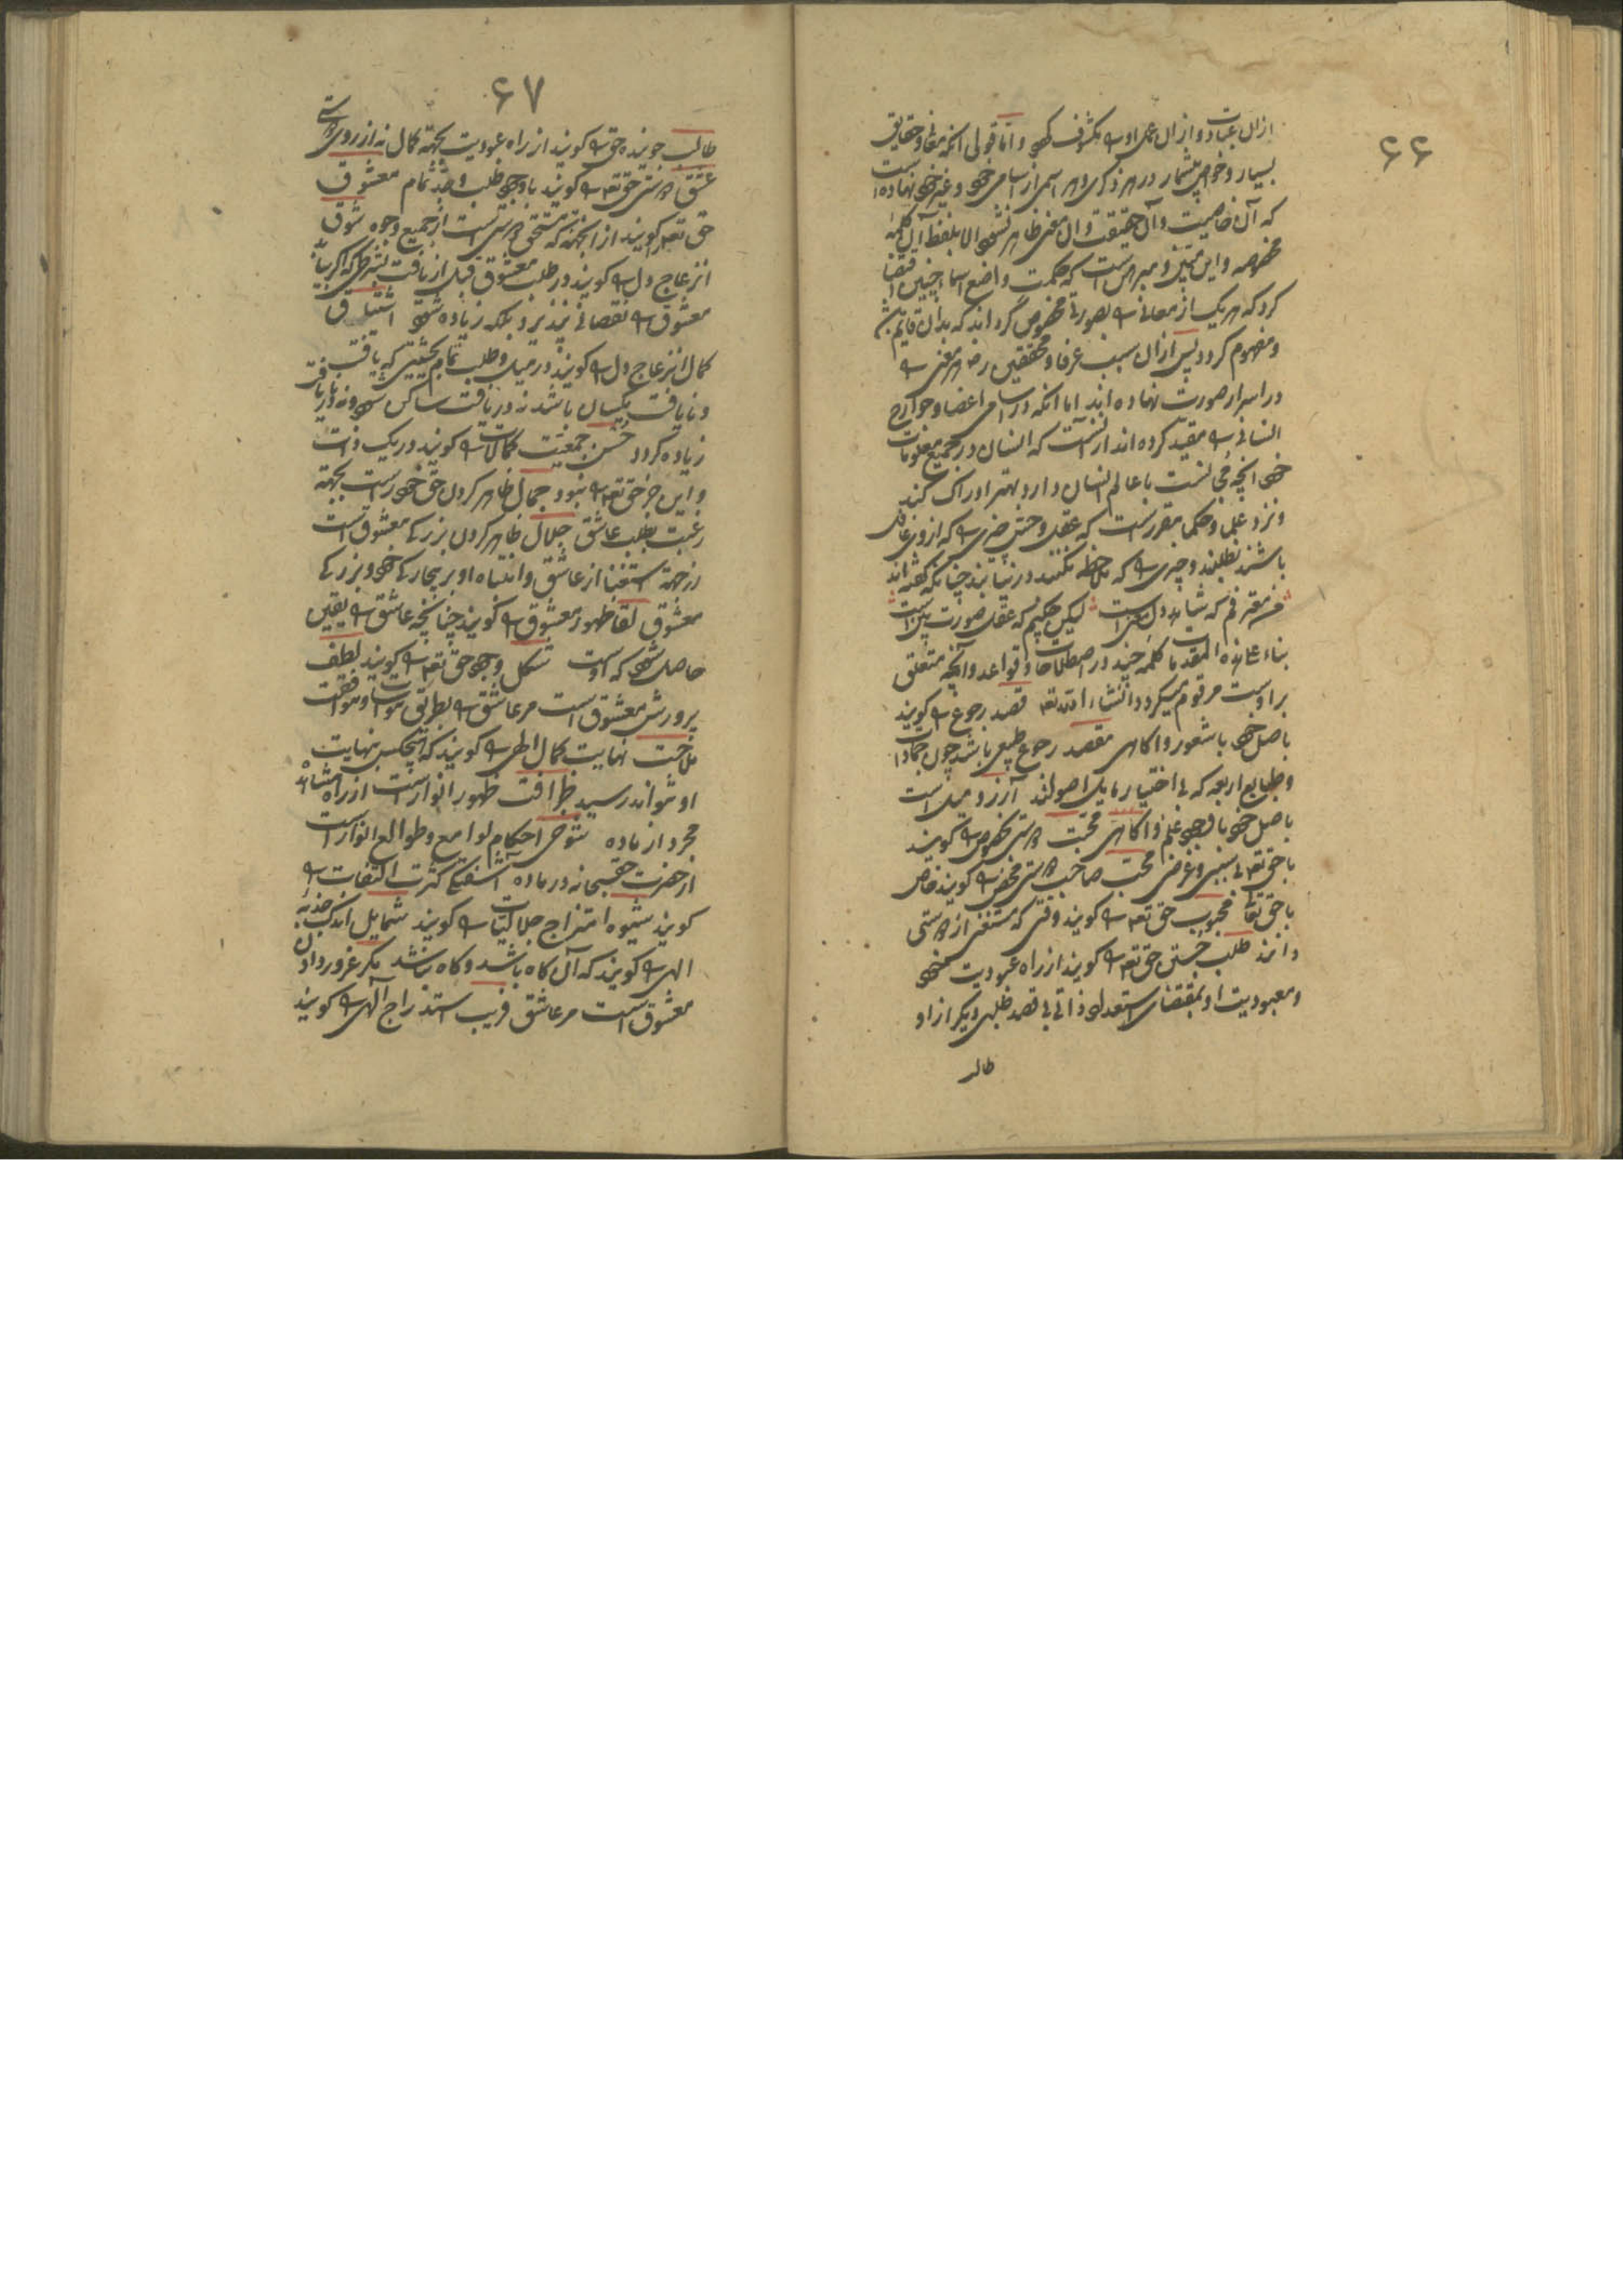 ۶۶
ازان عبادت و ازان عمل او را مکشوف و اما قولی آنکه معانی و حقایق
بسیار و خواص بیشمار در هر ذکری و هر اسمی از اسامی خود و غیر خود نهاده است
که آن خاصیت و آن حقیقت و آن معنی ظاهر نشود الا بلفظ آن کلمهٔ
مخصوصه و این معین و مبرهن است که حکمت واضع اسما چنین اقتضا
کرد که هر یک از معانی را بصورتی مخصوص گرداند که بدان قایم
و مفهوم کردد پس ازان سبب عرفا و محققین هر معنی را
در اسرار صورت نهاده اند اما آنکه در اسامی اعضا و جوارح
انسانی را مقید کرده اند ازنست که انسان در جمیع معلومات
خود آنچه مجانست با عالم انسان دارد بهتر ادراک کند
و نزد علما و حکما مقررست که عقل و حس چیزی را که ازو غافل
باشند نطلبند و چیزی را که ملاحظه نکنند در نیابند چنانکه گفته اند
معترفم که شاهد دل معنی است لیکن چکنم که عقل صورت بین است
بناء علی هذه المقدمات کلمهٔ چند در اصطلاحات و قواعد و آنچه متعلق
براوست مرقوم میکردد انشاء الله تعه قصد رجوع را کویند
باصل خود با شعور و آکاهی مقصد رجوع طبیعی باشد چون جمادات
و طبایع اربعه که بی اختیار مایل اصولند آرزو میل است
باصل خود با وجود علم و آکاهی محبت دوستی مخصوص را کویند
با حق تعه بی سببی و غرضی محب صاحب دوستی محض را کویند خاص
با حق تعا محبوب حق تعه را کویند وقتی که مستغنی از دوستی
دانند طلب جستن حق تعه را کویند از راه عبودیت خود
و معبودیت او بمقتضای استعداد ذاتی بی قصد طلبی دیکر ازاو
طالب
۶۷
طالب جوینده حق را کویند از راه عبودیت بجهة کمال نه از روی دوستی
عشق دوستی حق تعه را کویند با وجود طلب و جد تمام معشوق
حق تعه را کویند ازانجهة که مستحق دوستی است از جمیع وجوه شوق
انزعاج دل را کویند در طلب معشوق قبل از یافت بشرطی که اکر بیابد
معشوق را نقصانی نپذیرد بلکه زیاده شود اشتیاق
کمال انزعاج دل را کویند در میل و طلب تمام بحیثیتی که یافت
و نایافت یکسان باشد نه در یافت ساکن شود و نه در نایافت
زیاده کردد حسن جمعیت کمالات را کویند در یک ذات
و این جز حق تعه را نبود جمال ظاهر کردن حق خود راست بجهة
رغبت بطلب عاشق جلال ظاهر کردن بزرکی معشوق است
از جهة استغنا از عاشق و انتباه او بر بیچارکی خود و بزرکی
معشوق لقا ظهور معشوق را کویند چنانچه عاشق را یقین
حاصل شود که اوست شکل وجود حق تعه را کویند لطف
پرورش معشوق است مر عاشق را بطریق مواسات و موافقت
ملاحت نهایت کمال الهی را کویند که هیچکس بنهایت
او نتواند رسید ظرافت ظهور انوار است از راه مشاهده
مجرد از ماده شوخی احکام لوامع و طوالع انوار است
از حضرت حق سبحانه در ماده آشفتکی کثرت التفات را
کویند شیوه امتزاج جلالیات را کویند شمایل اندک جذبه
الهی را کویند که آن کاه باشد و کاه نباشد مکر غرور دادن
معشوق است مر عاشق فریب استدراج الهی را کویند